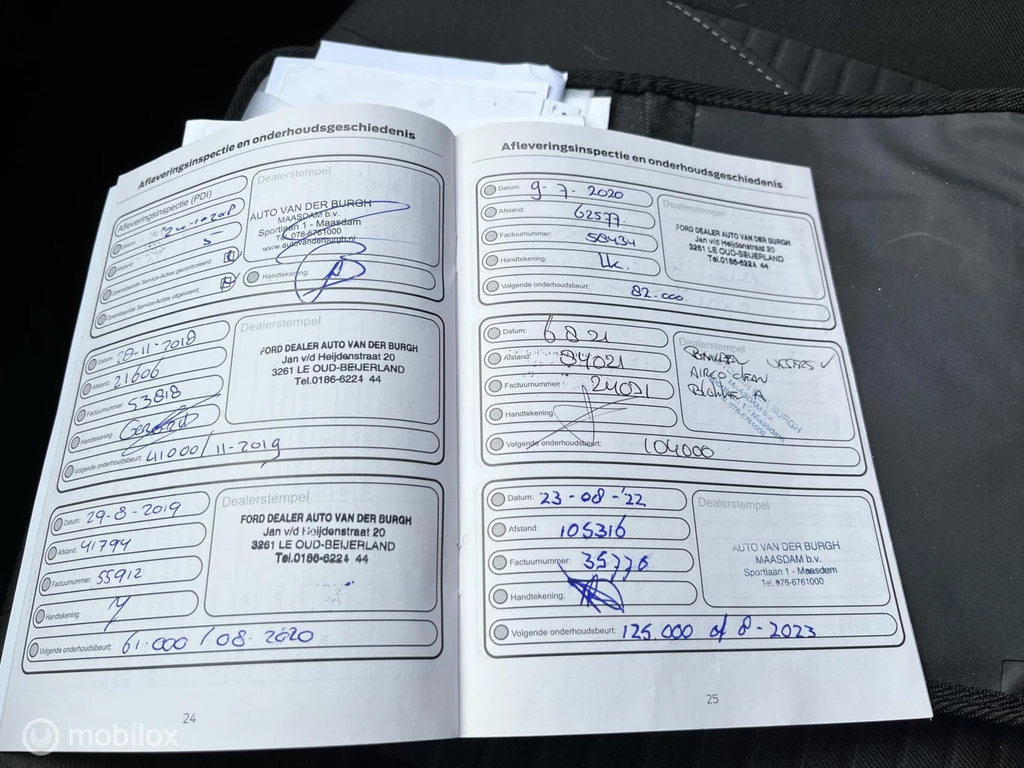 Afleveringsinspectie en onderhoudsgeschiedenis
Afleveringsinspectie (PDI)
Datum:
Afstand: 5
Openstaande Service-Acties gecontroleerd:
Openstaande Service-Acties uitgevoerd:
Dealerstempel
AUTO VAN DER BURGH
MAASDAM b.v.
Sportlaan 1 - Maasdam
Tel. 078-6761000
www.autovanderburgh.nl
Handtekening:
Datum: 28-11-2018
Afstand: 21606
Factuurnummer: 53818
Handtekening:
Volgende onderhoudsbeurt: 41000/11-2019
Dealerstempel
FORD DEALER AUTO VAN DER BURGH
Jan v/d Heijdenstraat 20
3261 LE OUD-BEIJERLAND
Tel.0186-6224 44
Datum: 29-8-2019
Afstand: 41794
Factuurnummer: 55912
Handtekening:
Volgende onderhoudsbeurt: 61.000/08-2020
Dealerstempel
FORD DEALER AUTO VAN DER BURGH
Jan v/d Heijdenstraat 20
3261 LE OUD-BEIJERLAND
Tel.0186-6224 44
24
Afleveringsinspectie en onderhoudsgeschiedenis
Datum: 9-7-2020
Afstand: 62577
Factuurnummer: 58434
Handtekening:
Volgende onderhoudsbeurt: 82.000
Dealerstempel
FORD DEALER AUTO VAN DER BURGH
Jan v/d Heijdenstraat 20
3261 LE OUD-BEIJERLAND
Tel.0186-6224 44
Datum: 6 8 21
Afstand: 84021
Factuurnummer: 24091
Handtekening:
Volgende onderhoudsbeurt: 104000
Dealerstempel
AIRCO CLEAN
Datum: 23-08-'22
Afstand: 105316
Factuurnummer: 35776
Handtekening:
Volgende onderhoudsbeurt: 125.000 of 8-2023
Dealerstempel
AUTO VAN DER BURGH
MAASDAM b.v.
Sportlaan 1 - Maasdam
Tel. 078-6761000
25
mobilox